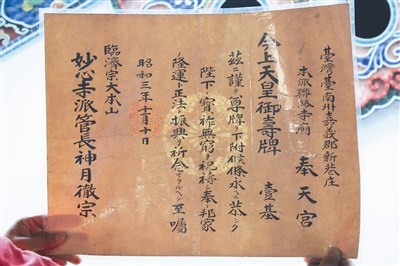 臺灣臺南州嘉義郡新巷庄
本派聯絡寺廟 奉天宮
今上天皇御壽牌 壹基
茲ニ謹テ尊牌ヲ下附候條永ヘニ恭シク
陛下ノ寶祚無窮ヲ祝禱シ奉リ邦家
ノ隆運ト正法ノ振興ヲ祈念セラルヘシ至囑
昭和三年十一月十日
臨濟宗大本山
妙心寺派管長神月徹宗